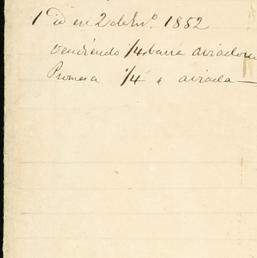 1 Dia en 2 de En.º 1852
vendiendo 1/4 barra aviadora
Promesa 1/4 " aviada